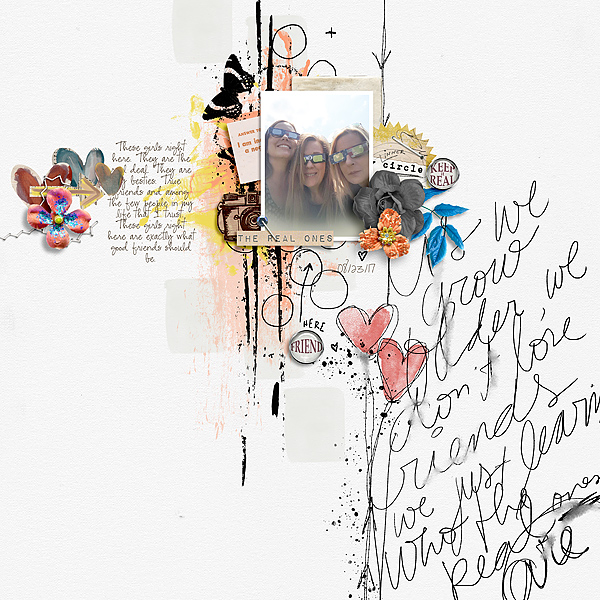 These girls right
here. They are the
real deal. They are
my besties. True
friends and among
the few people in my
life that I trust.
These girls right
here are exactly what
good friends should
be.
I am in
a ne
INNER
circle
KEEP
REAL
THE REAL ONES
08/23/17
HERE
FRIEND
As we
grow
older we
don't lose
friends
we just learn
who the ones
real
are